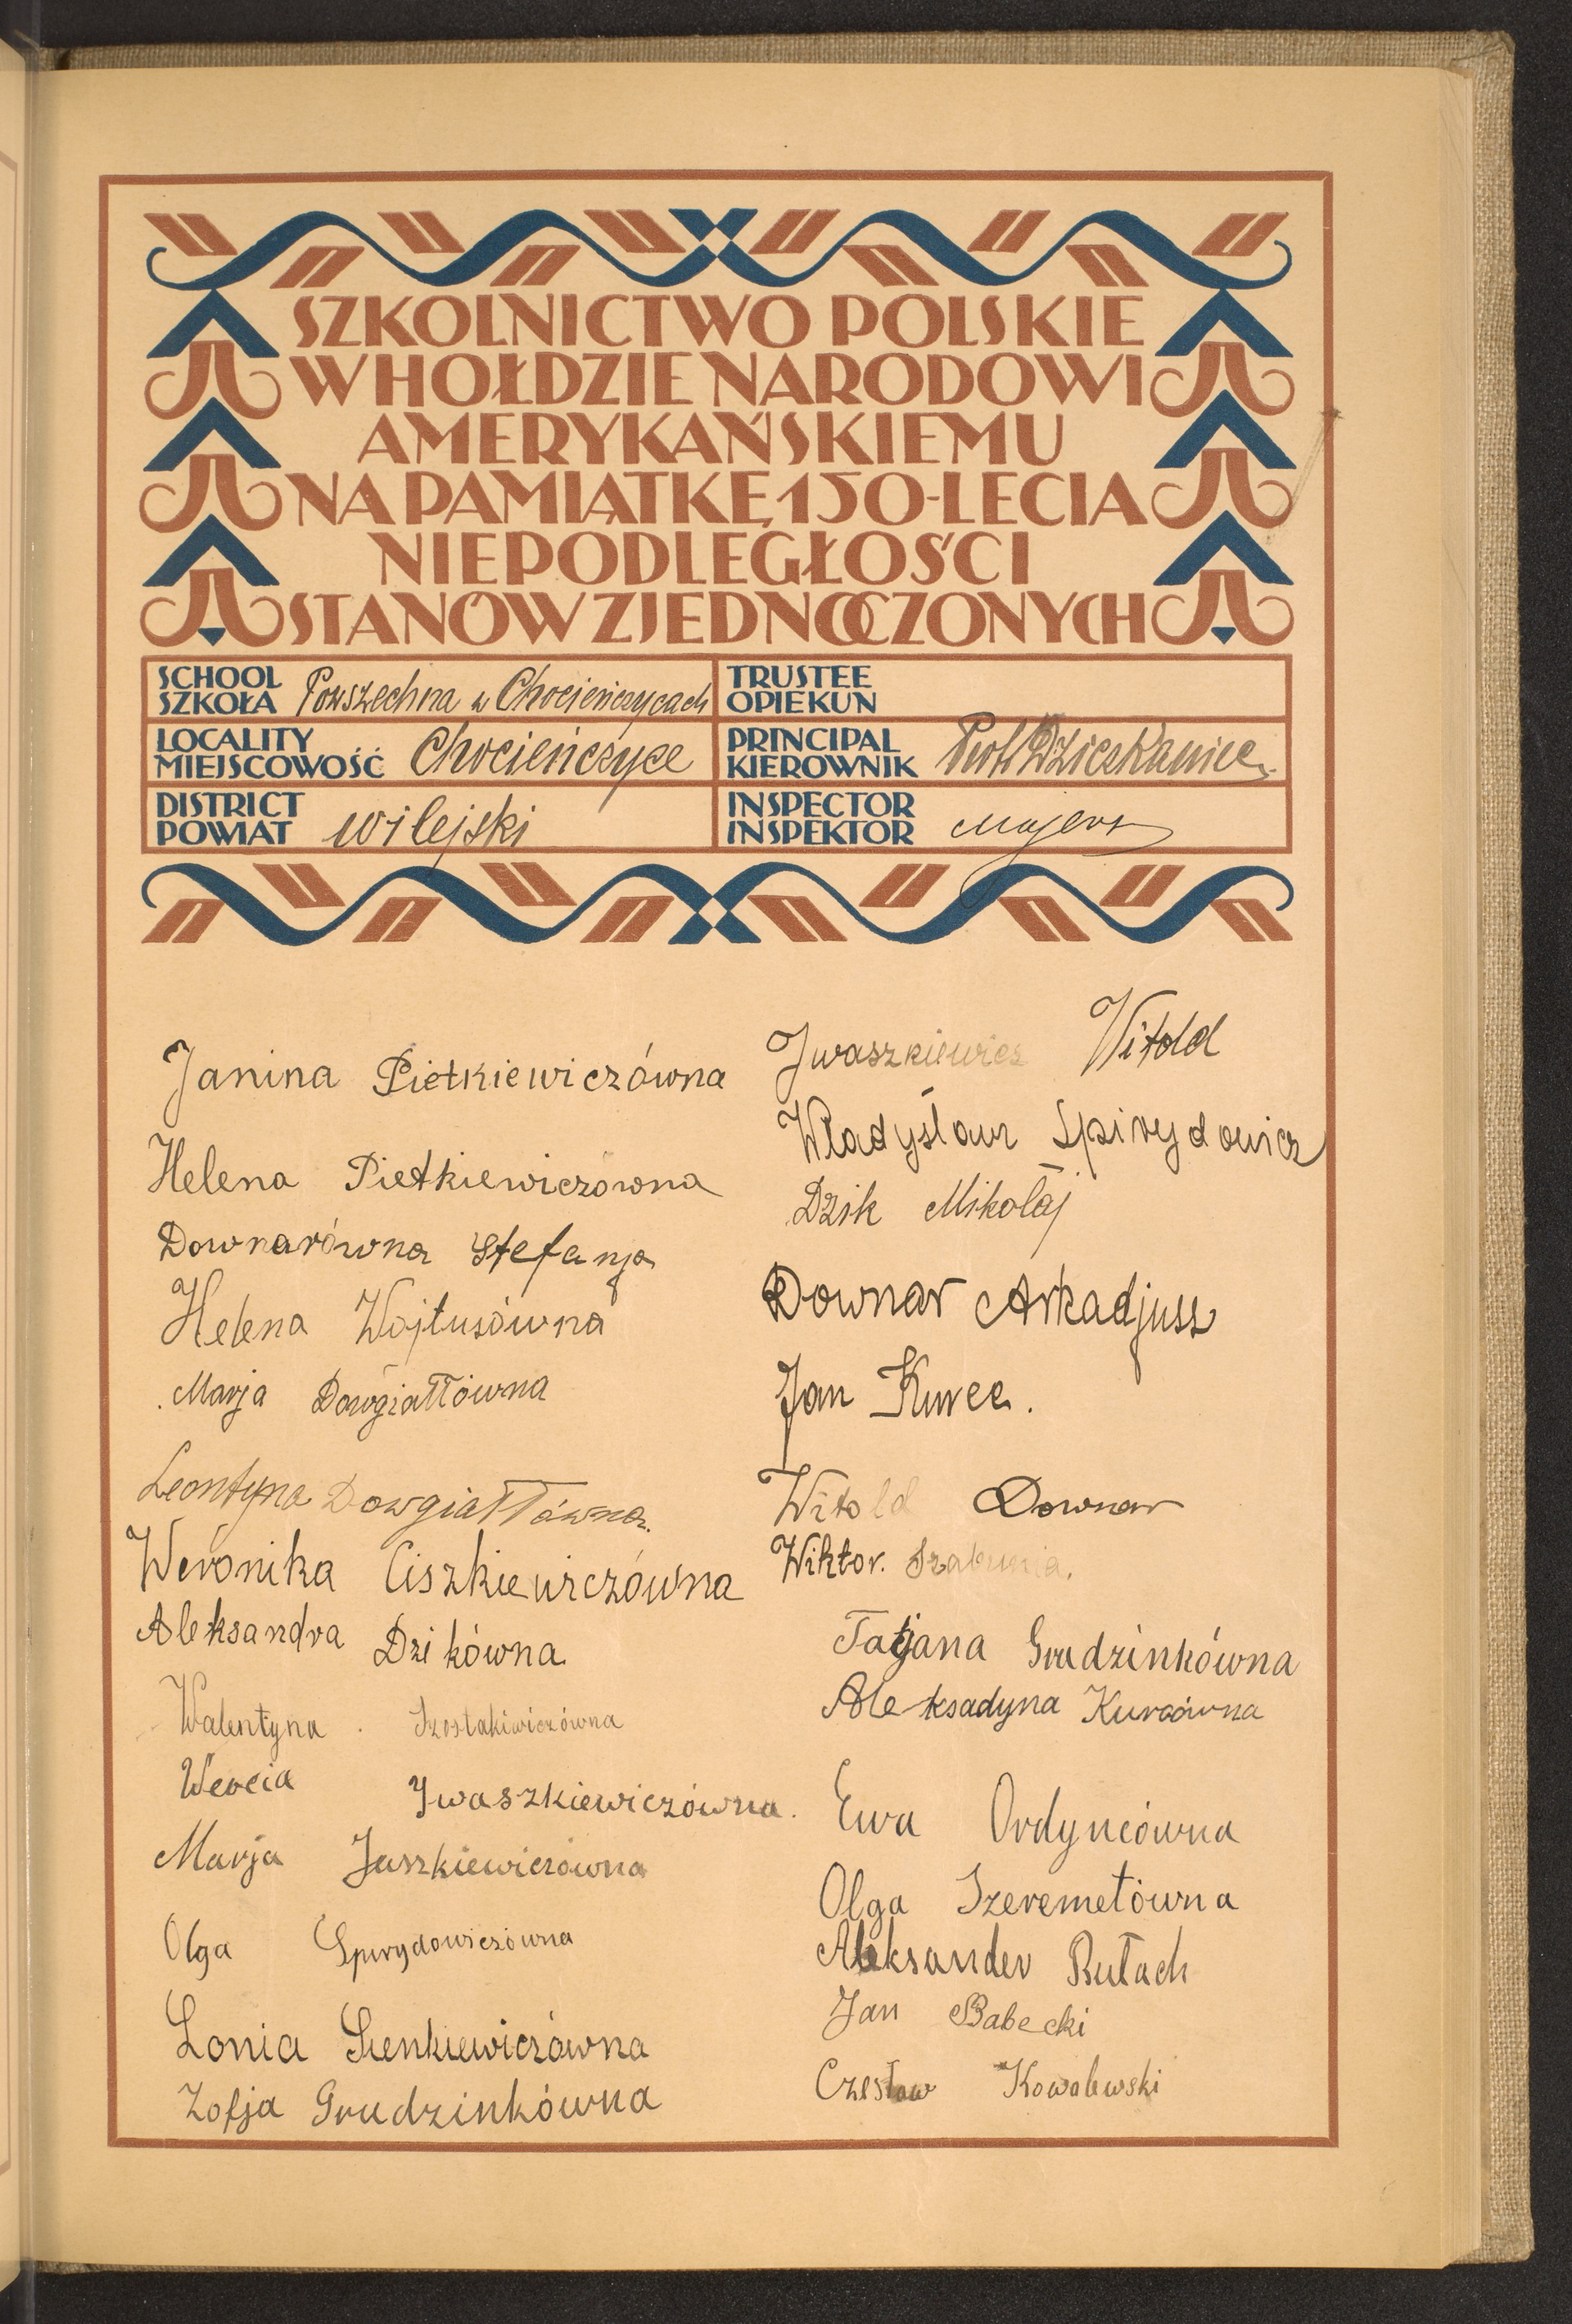 SZKOLNICTWO POLSKIE
W HOŁDZIE NARODOWI
AMERYKAŃSKIEMU
NA PAMIĄTKĘ 150-LECIA
NIEPODLEGŁOŚCI
STANÓW ZJEDNOCZONYCH
SCHOOL
SZKOŁA Powszechna w Chocieńczycach
TRUSTEE
OPIEKUN
LOCALITY
MIEJSCOWOŚĆ Chocieńczyce
PRINCIPAL
KIEROWNIK Piotr
DISTRICT
POWIAT wilejski
INSPECTOR
INSPEKTOR
Janina Pietkiewiczówna
Helena Pietkiewiczówna
Downarówna Stefanja
Helena Wojtusówna
Marja Dowgiałłówna
Leontyna Dowgiałłówna.
Weronika Ciszkiewiczówna
Aleksandra Dzikówna
Walentyna Szostakiwiczówna
Wercia Iwaszkiewiczówna.
Marja Juszkiewiczówna
Olga Spirydowiczówna
Lonia Sienkiewiczówna
Zofja Grudzinkówna
Iwaszkiewicz Witold
Władysław Spirydowicz
Dzik Mikołaj
Downar Arkadjusz
Jan Kurec.
Witold Downar
Wiktor.
Tatjana Grudzinkówna
Aleksadyna Kurcówna
Ewa Ordyncówna
Olga Szeremetówna
Aleksander Rutach
Jan Babecki
Czesław Kowalewski